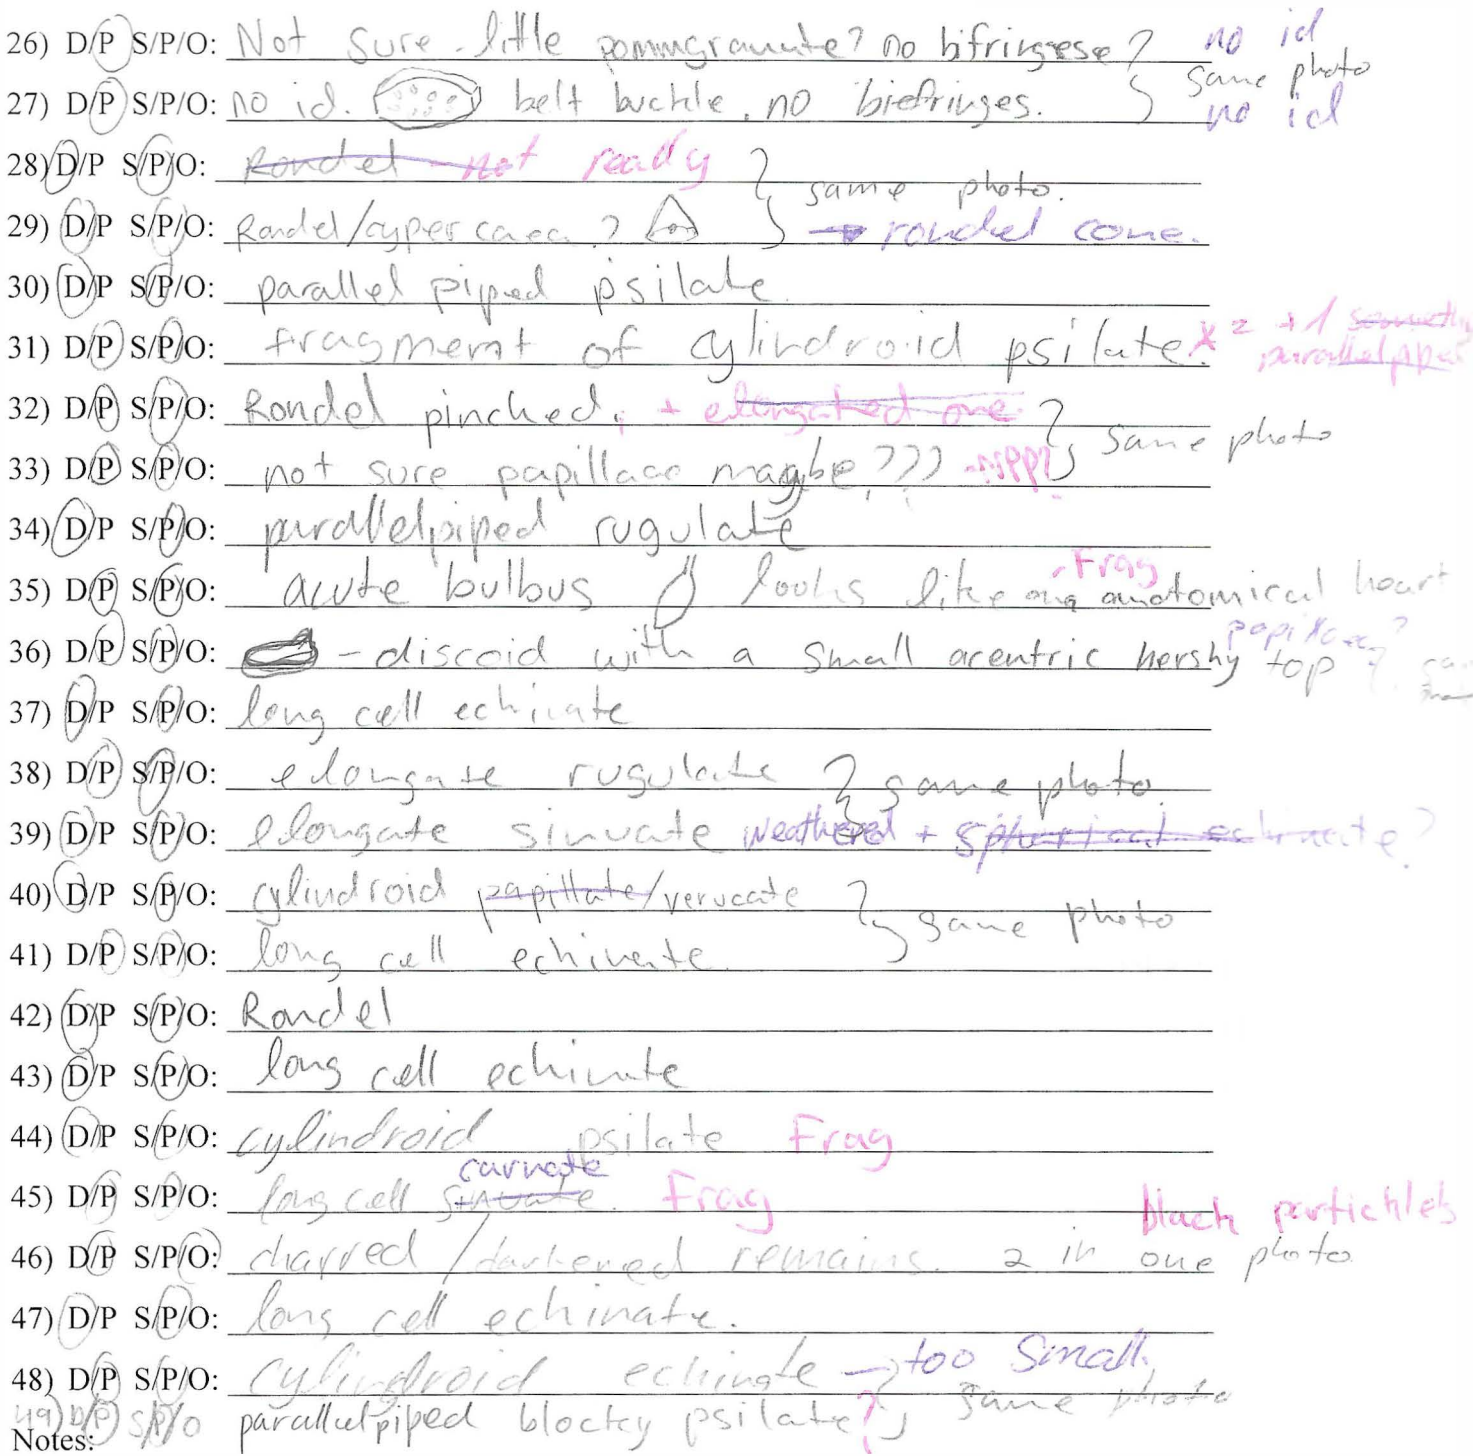 26) D/P S/P/O: Not sure - little pommgranate? no bifringese? no id
same photo
27) D/P S/P/O: no id. belt buckle, no biefringes. no id
28) D/P S/P/O: Rondel - not really
same photo.
29) D/P S/P/O: Rondel/cyperacaea? → rondel cone.
30) D/P S/P/O: parallel piped psilate.
31) D/P S/P/O: fragment of cylindroid psilate. x2 +1
parallelpiped
32) D/P S/P/O: Rondel pinched, + elongated one
same photo
33) D/P S/P/O: not sure papillae maybe???
34) D/P S/P/O: parallelpiped rugulate
- Frag
35) D/P S/P/O: acute bulbus looks like anatomical heart
papillae?
36) D/P S/P/O: - discoid with a small acentric hershy top
37) D/P S/P/O: long cell echinate
38) D/P S/P/O: elongate rugulate same photo.
39) D/P S/P/O: elongate sinuate weathered + spherical echinate?
40) D/P S/P/O: cylindroid papillate/verucate
same photo
41) D/P S/P/O: long cell echinate
42) D/P S/P/O: Rondel
43) D/P S/P/O: long cell echinate
44) D/P S/P/O: cylindroid psilate Frag
curvate
45) D/P S/P/O: long cell sinuate. Frag
black partichles
46) D/P S/P/O: charred/darkened remains. 2 in one photo
47) D/P S/P/O: long cell echinate.
48) D/P S/P/O: cylindroid echinate → too small.
same photo
49) D/P S/P/O parallelpiped blocky psilate?
Notes: